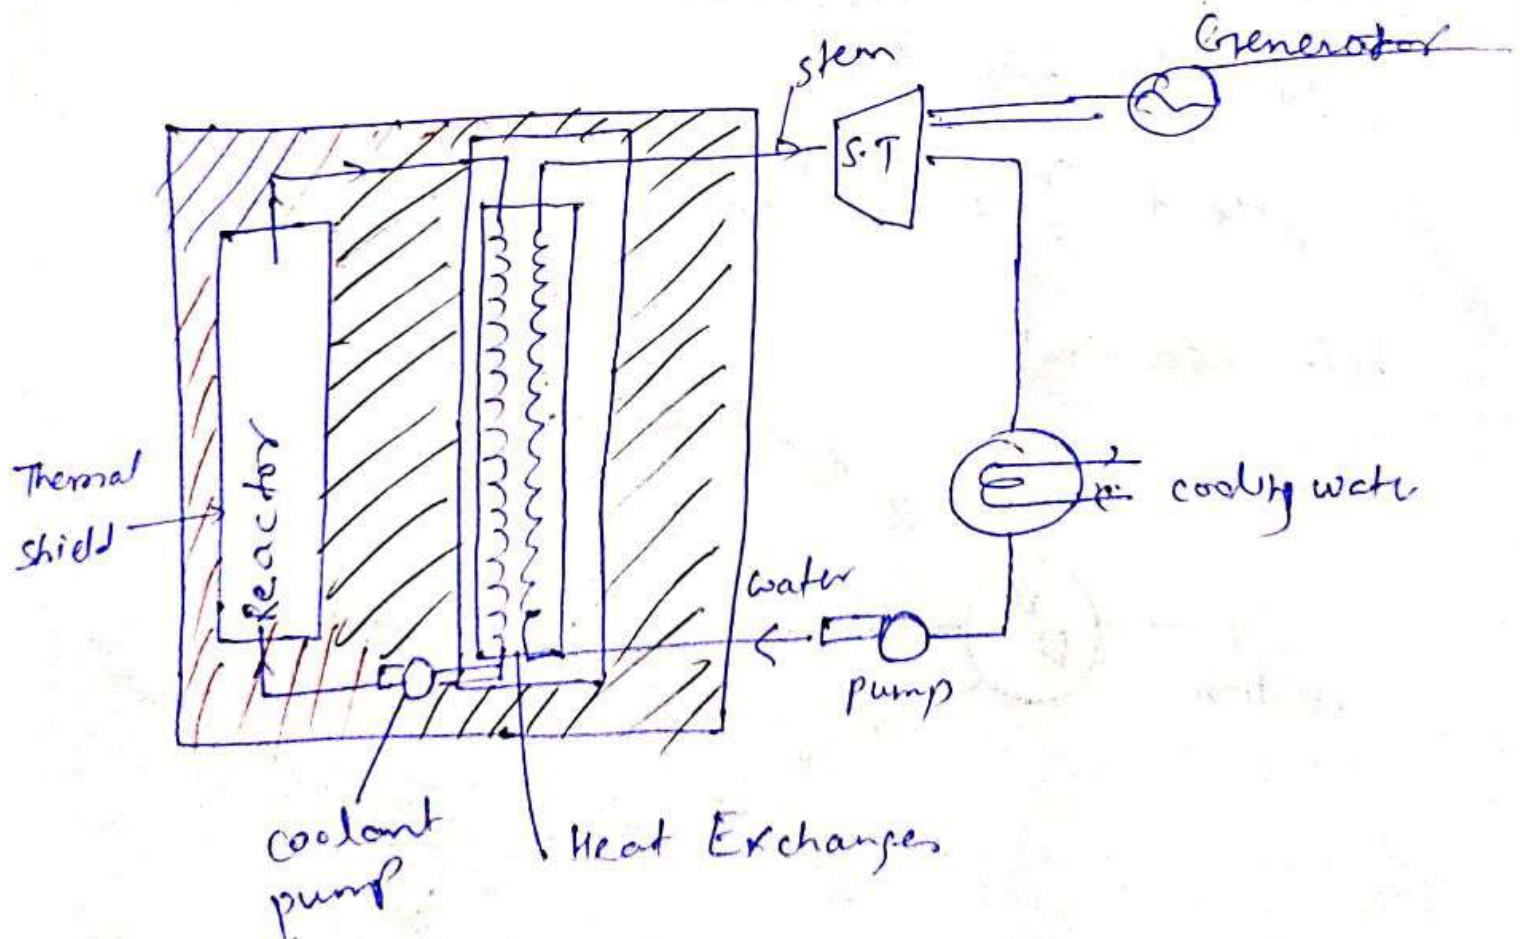 Generator
stem
S.T
Thermal
shield
Reactor
cooling water
water
pump
coolant
pump
Heat Exchanges